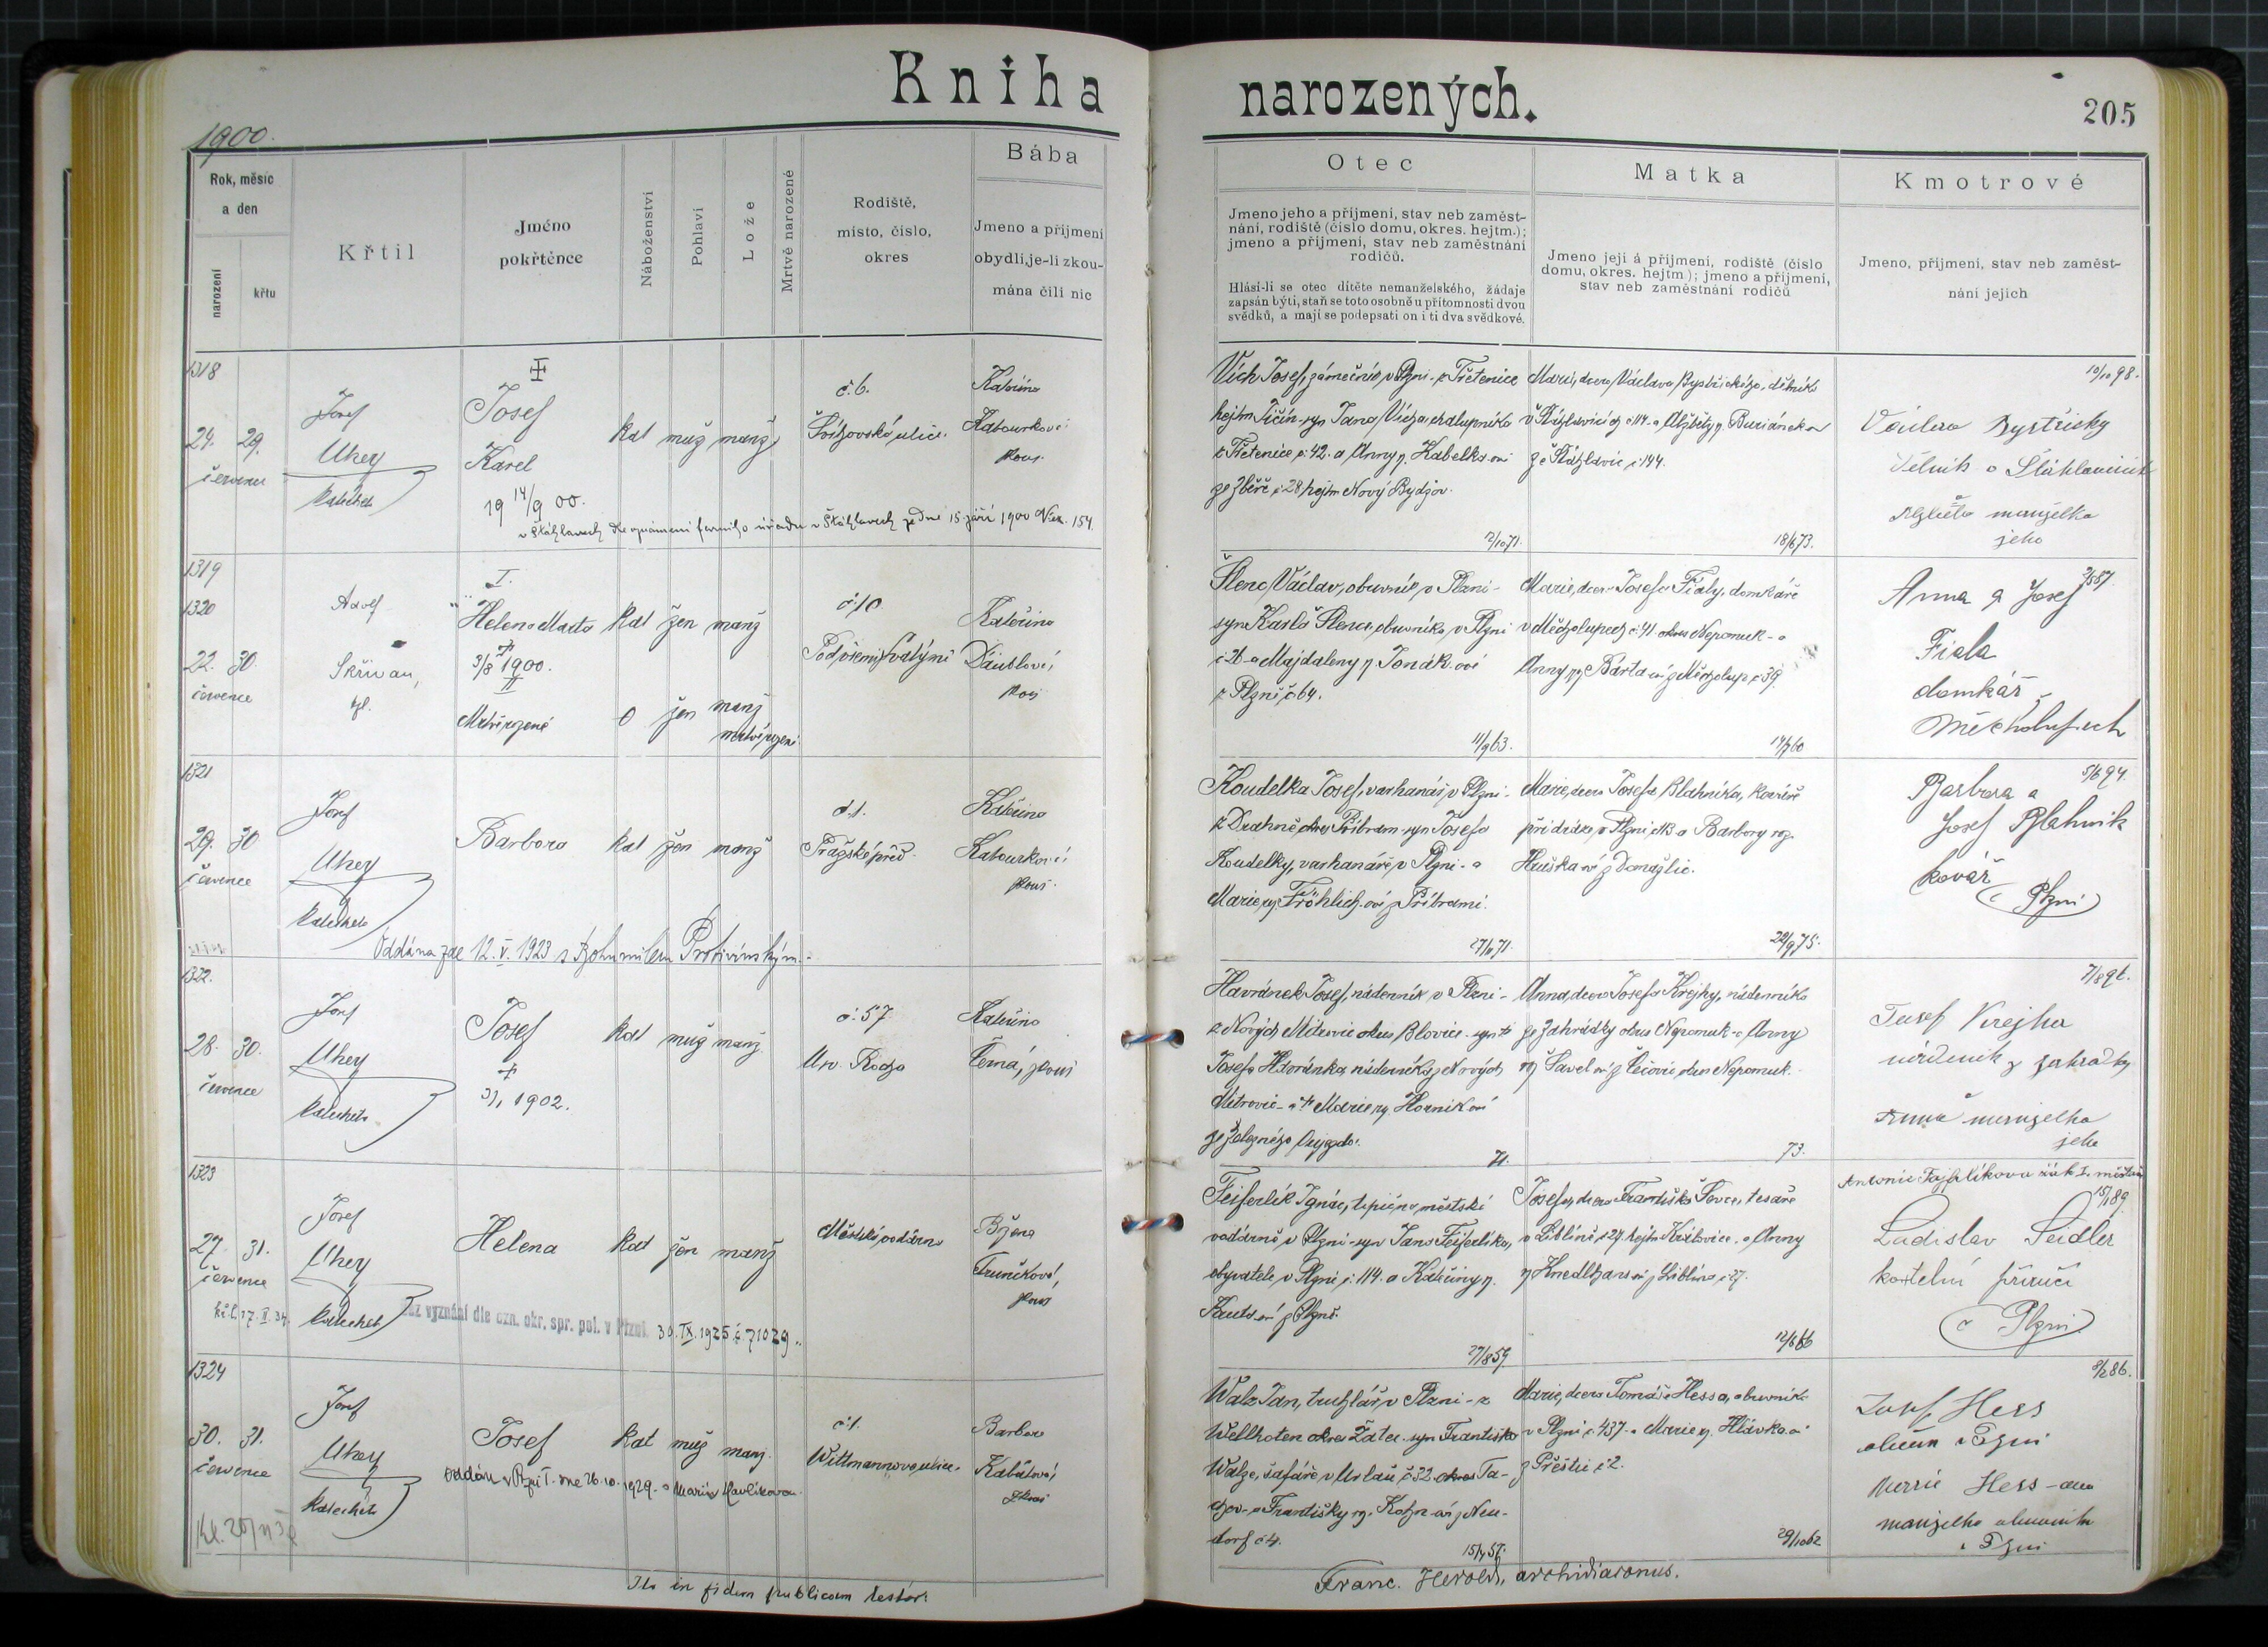 Kniha narozených.
205
1900.
Rok, měsíc
a den
narození
křtu
Křtil
Jméno
pokřtěnce
Náboženství
Pohlaví
Lože
Mrtvě narozené
Rodiště,
místo, číslo,
okres
Bába
Jmeno a příjmení
obydlí, je-li zkou-
mána čili nic
Otec
Jmeno jeho a příjmení, stav neb zaměst-
nání, rodiště (číslo domu, okres. hejtm.);
jmeno a příjmení, stav neb zaměstnání
rodičů.
Hlásí-li se otec dítěte nemanželského, žádaje
zapsán býti, staň se toto osobně u přítomnosti dvou
svědků, a mají se podepsati on i ti dva svědkové.
Matka
Jmeno její a příjmení, rodiště (číslo
domu, okres. hejtm.); jmeno a příjmení,
stav neb zaměstnání rodičů
Kmotrové
Jmeno, příjmení, stav neb zaměst-
nání jejich
1318
24. 29.
července
Josef
Uhey
katecheta
Josef
Karel
19 14/9 00.
kat muž manž
č. 6.
ulice
Kateřina
Katourková
Vích Josef, zámečník v Plzni - z Třetenice
hejtm Jičín - syn Jana Vícha, chalupníka
z Třetenice č. 42. a Anny r. Kabelka-ovi
ze Zběře č 28 hejtm Nový Bydžov.
2/10 71.
Marie, dcera Václava Bystřického, dělníka
v Štáhlavicích č 114 - a Alžběty r. Buriánek
ze Štáhlavic č 144.
18/6 73.
10/10 98.
Václav Bystřický
dělník v Štáhlavicích
Alžběta manželka
jeho
v Štáhlavech dle oznámení farního úřadu v Štáhlavech ze dne 15. září 1900 154.
1319
1320
22. 30.
července
Adolf
Skřivan,
I.
Helena Marta
3/8 1900.
II
Mrtvěrozené
kat žen manž
0 žen manž
mrtvěrozené
č. 10.
Kateřina
Däublová,
Šlenc Václav, obuvník v Plzni -
syn Karla Šlence, obuvníka v Plzni
č 26 - a Majdaleny r. Jonák-ové
z Plzně č 64.
11/9 63.
Marie, dcera Josefa Fialy, domkáře
v Měcholupech č 41 okres Nepomuk - a
Anny roz Bárta-ové z Měcholup č 39.
14/7 60
Anna a Josef
Fiala
domkář
Měcholupech
1321
29. 30.
července
Josef
Uhey
katecheta
Barbora
kat žen manž
č. 1.
Pražské před.
Kateřina
Katourková
Koudelka Josef, varhanář v Plzni -
z Drahně okres Příbram - syn Josefa
Koudelky, varhanáře v Plzni - a
Marie roz Fröhlich-ové z Příbrami.
27/1 71.
Marie, dcera Josefa Blahníka, kováře
při dráze v Plzni č 13 a Barbory roz.
Hruška-ové z Domažlic.
22/9 75.
5/6 94.
Barbora a
Josef Blahník
kovář
v Plzni
Oddána zde 12. V. 1923 s Bohumilem Protivínským.
1322.
28. 30.
července
Josef
Uhey
katecheta
Josef
3/1 1902.
kat muž manž.
č. 57
U sv. Rocha
Kateřina
Černá,
Havránek Josef, nádenník v Plzni -
z Nových Mitrovic okres Blovice - syn
Josefa Havránka, nádenníka z Nových
Mitrovic - a Marie roz. Horník-ové
ze Železného Újezda.
71.
Anna, dcera Josefa Krejhy, nádenníka
ze Zahrádky okres Nepomuk - a Anny
roz Šavel-ové z Čečovic, okres Nepomuk.
73.
Josef Krejha
nádeník z Zahrádky
Anna manželka
jeho
1323
27. 31.
července
Josef
Uhey
katecheta
Helena
kat žen manž
Městská vodárna
Božena
Truněčková,
Feiferlík Ignác, topič na městské
vodárně v Plzni - syn Jana Feiferlíka,
obyvatele v Plzni č. 114. a Kateřiny r.
Kauts-ové z Plzně.
27/8 59.
Josefa, dcera Františka Ševce, tesaře
v Liblíně č 27, hejtm Kralovice - a Anny
r Knedlhans-ové z Liblína č 27.
12/6 66
15/1 89.
Ladislav Seidler
kostelní příručí
v Plzni
bez vyznání dle ozn. okr. spr. pol. v Plzni 30. IX. 1925 č. 71029
1324
30. 31.
července
Josef
Uhey
katecheta
Josef
kat muž manž.
č 1.
Wittmannova ulice.
Barbora
Kabátová,
oddán v Plzni I. dne 26. 10. 1929. s Marií Havlíkovou.
Walz Jan, truhlář v Plzni - z
Wellhoten okres Žatec - syn Františka
Walze, šafáře v Urlau č 32 okres Ta-
chov - a Františky roz. Kohn-ové z Neu-
dorf č 4.
15/4 57.
Marie, dcera Tomáše Hessa, obuvníka
v Plzni č. 437 - a Marie r. Hlávka-ové
z Přeštic č 2.
29/10 62
8/2 86.
Josef Hess
obuvn v Plzni
Marie Hess-ova
manželka obuvníka
v Plzni
Ita in fidem publicam testor:
Franc. Herold, archidiaconus.